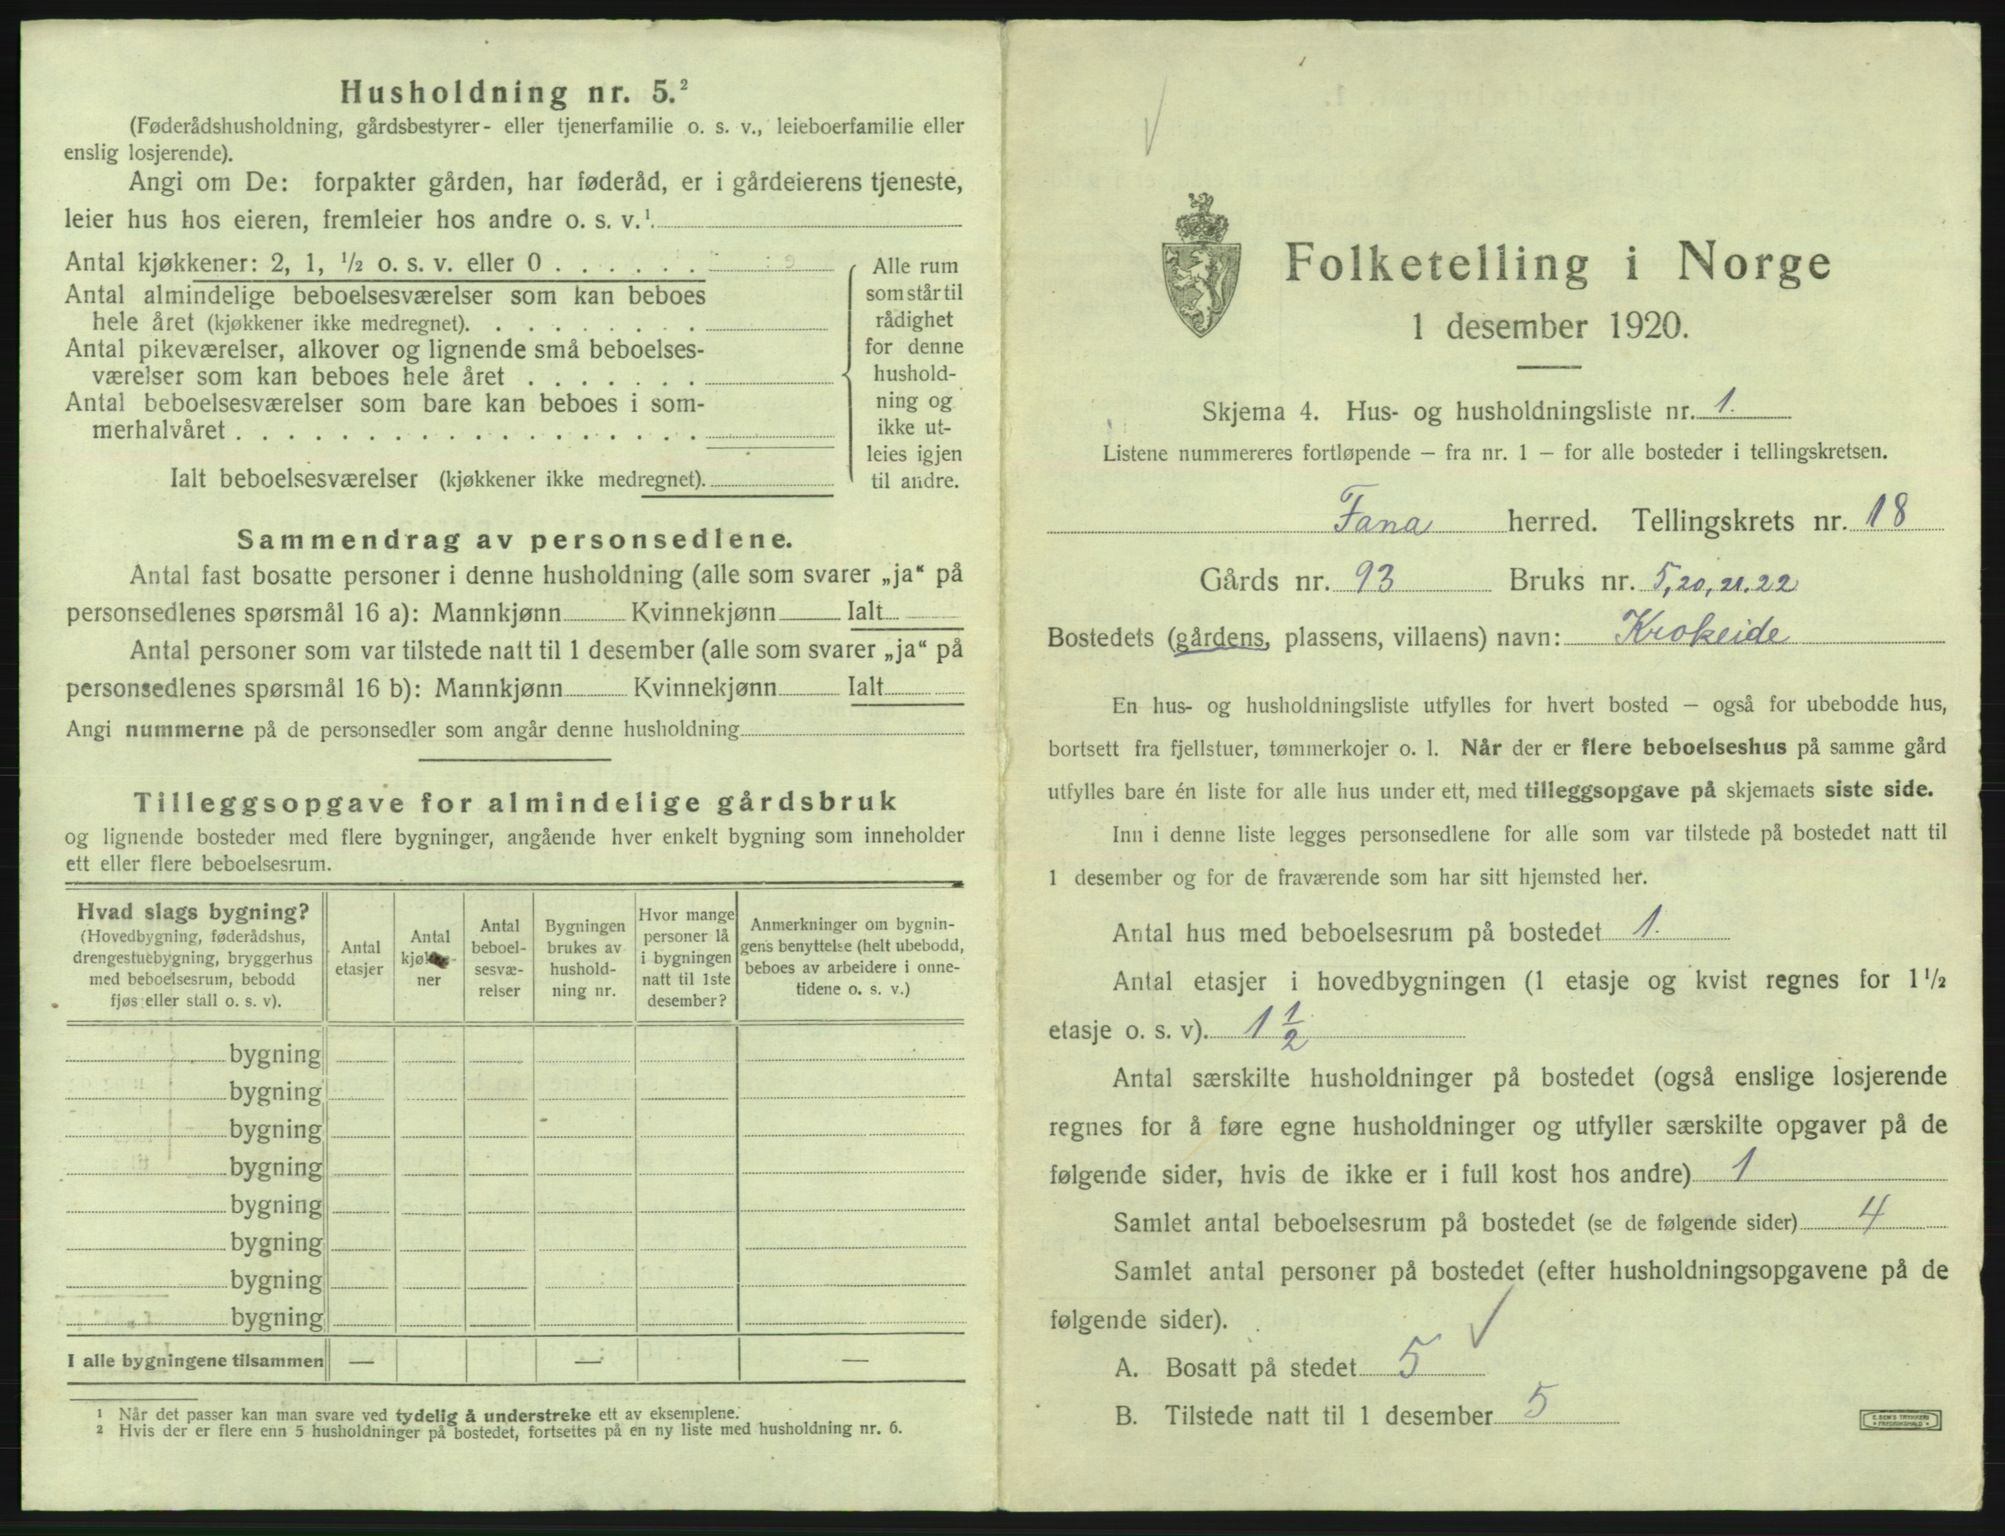 Husholdning nr. 5.²
(Føderådshusholdning, gårdsbestyrer- eller tjenerfamilie o. s. v., leieboerfamilie eller
enslig losjerende).
Angi om De: forpakter gården, har føderåd, er i gårdeierens tjeneste,
leier hus hos eieren, fremleier hos andre o. s. v.¹
Antal kjøkkener: 2, 1, ½ o. s. v. eller 0 . . . . . .
Antal almindelige beboelsesværelser som kan beboes
hele året (kjøkkener ikke medregnet). . . . . . . . .
Antal pikeværelser, alkover og lignende små beboelses-
værelser som kan beboes hele året . . . . . . .
Antal beboelsesværelser som bare kan beboes i som-
merhalvåret . . . . . . . . . . . . . . . . . .
Ialt beboelsesværelser (kjøkkener ikke medregnet).
Alle rum
som står til
rådighet
for denne
hushold-
ning og
ikke ut-
leies igjen
til andre.
Sammendrag av personsedlene.
Antal fast bosatte personer i denne husholdning (alle som svarer „ja“ på
personsedlenes spørsmål 16 a): Mannkjønn Kvinnekjønn Ialt
Antal personer som var tilstede natt til 1 desember (alle som svarer „ja“ på
personsedlenes spørsmål 16 b): Mannkjønn Kvinnekjønn Ialt
Angi nummerne på de personsedler som angår denne husholdning
Tilleggsopgave for almindelige gårdsbruk
og lignende bosteder med flere bygninger, angående hver enkelt bygning som inneholder
ett eller flere beboelsesrum.
Hvad slags bygning?
(Hovedbygning, føderådshus,
drengestuebygning, bryggerhus
med beboelsesrum, bebodd
fjøs eller stall o. s. v).
Antal
etasjer
Antal
kjøkke-
ner
Antal
beboel-
sesvæ-
relser
Bygningen
brukes av
hushold-
ning nr.
Hvor mange
personer lå
i bygningen
natt til 1ste
desember?
Anmerkninger om bygnin-
gens benyttelse (helt ubebodd,
beboes av arbeidere i onne-
tidene o. s. v.)
bygning
bygning
bygning
bygning
bygning
bygning
bygning
bygning
I alle bygningene tilsammen — — —
¹ Når det passer kan man svare ved tydelig å understreke ett av eksemplene.
² Hvis der er flere enn 5 husholdninger på bostedet, fortsettes på en ny liste med husholdning nr. 6.
Folketelling i Norge
1 desember 1920.
Skjema 4. Hus- og husholdningsliste nr. 1.
Listene nummereres fortløpende — fra nr. 1 — for alle bosteder i tellingskretsen.
Fana herred. Tellingskrets nr. 18
Gårds nr. 93 Bruks nr. 5, 20, 21. 22
Bostedets (gårdens, plassens, villaens) navn: Krokeide
En hus- og husholdningsliste utfylles for hvert bosted — også for ubebodde hus,
bortsett fra fjellstuer, tømmerkojer o. l. Når der er flere beboelseshus på samme gård
utfylles bare én liste for alle hus under ett, med tilleggsopgave på skjemaets siste side.
Inn i denne liste legges personsedlene for alle som var tilstede på bostedet natt til
1 desember og for de fraværende som har sitt hjemsted her.
Antal hus med beboelsesrum på bostedet 1.
Antal etasjer i hovedbygningen (1 etasje og kvist regnes for 1 ½
etasje o. s. v). 1 ½
Antal særskilte husholdninger på bostedet (også enslige losjerende
regnes for å føre egne husholdninger og utfyller særskilte opgaver på de
følgende sider, hvis de ikke er i full kost hos andre) 1
Samlet antal beboelsesrum på bostedet (se de følgende sider) 4
Samlet antal personer på bostedet (efter husholdningsopgavene på de
følgende sider).
A. Bosatt på stedet 5
B. Tilstede natt til 1 desember 5